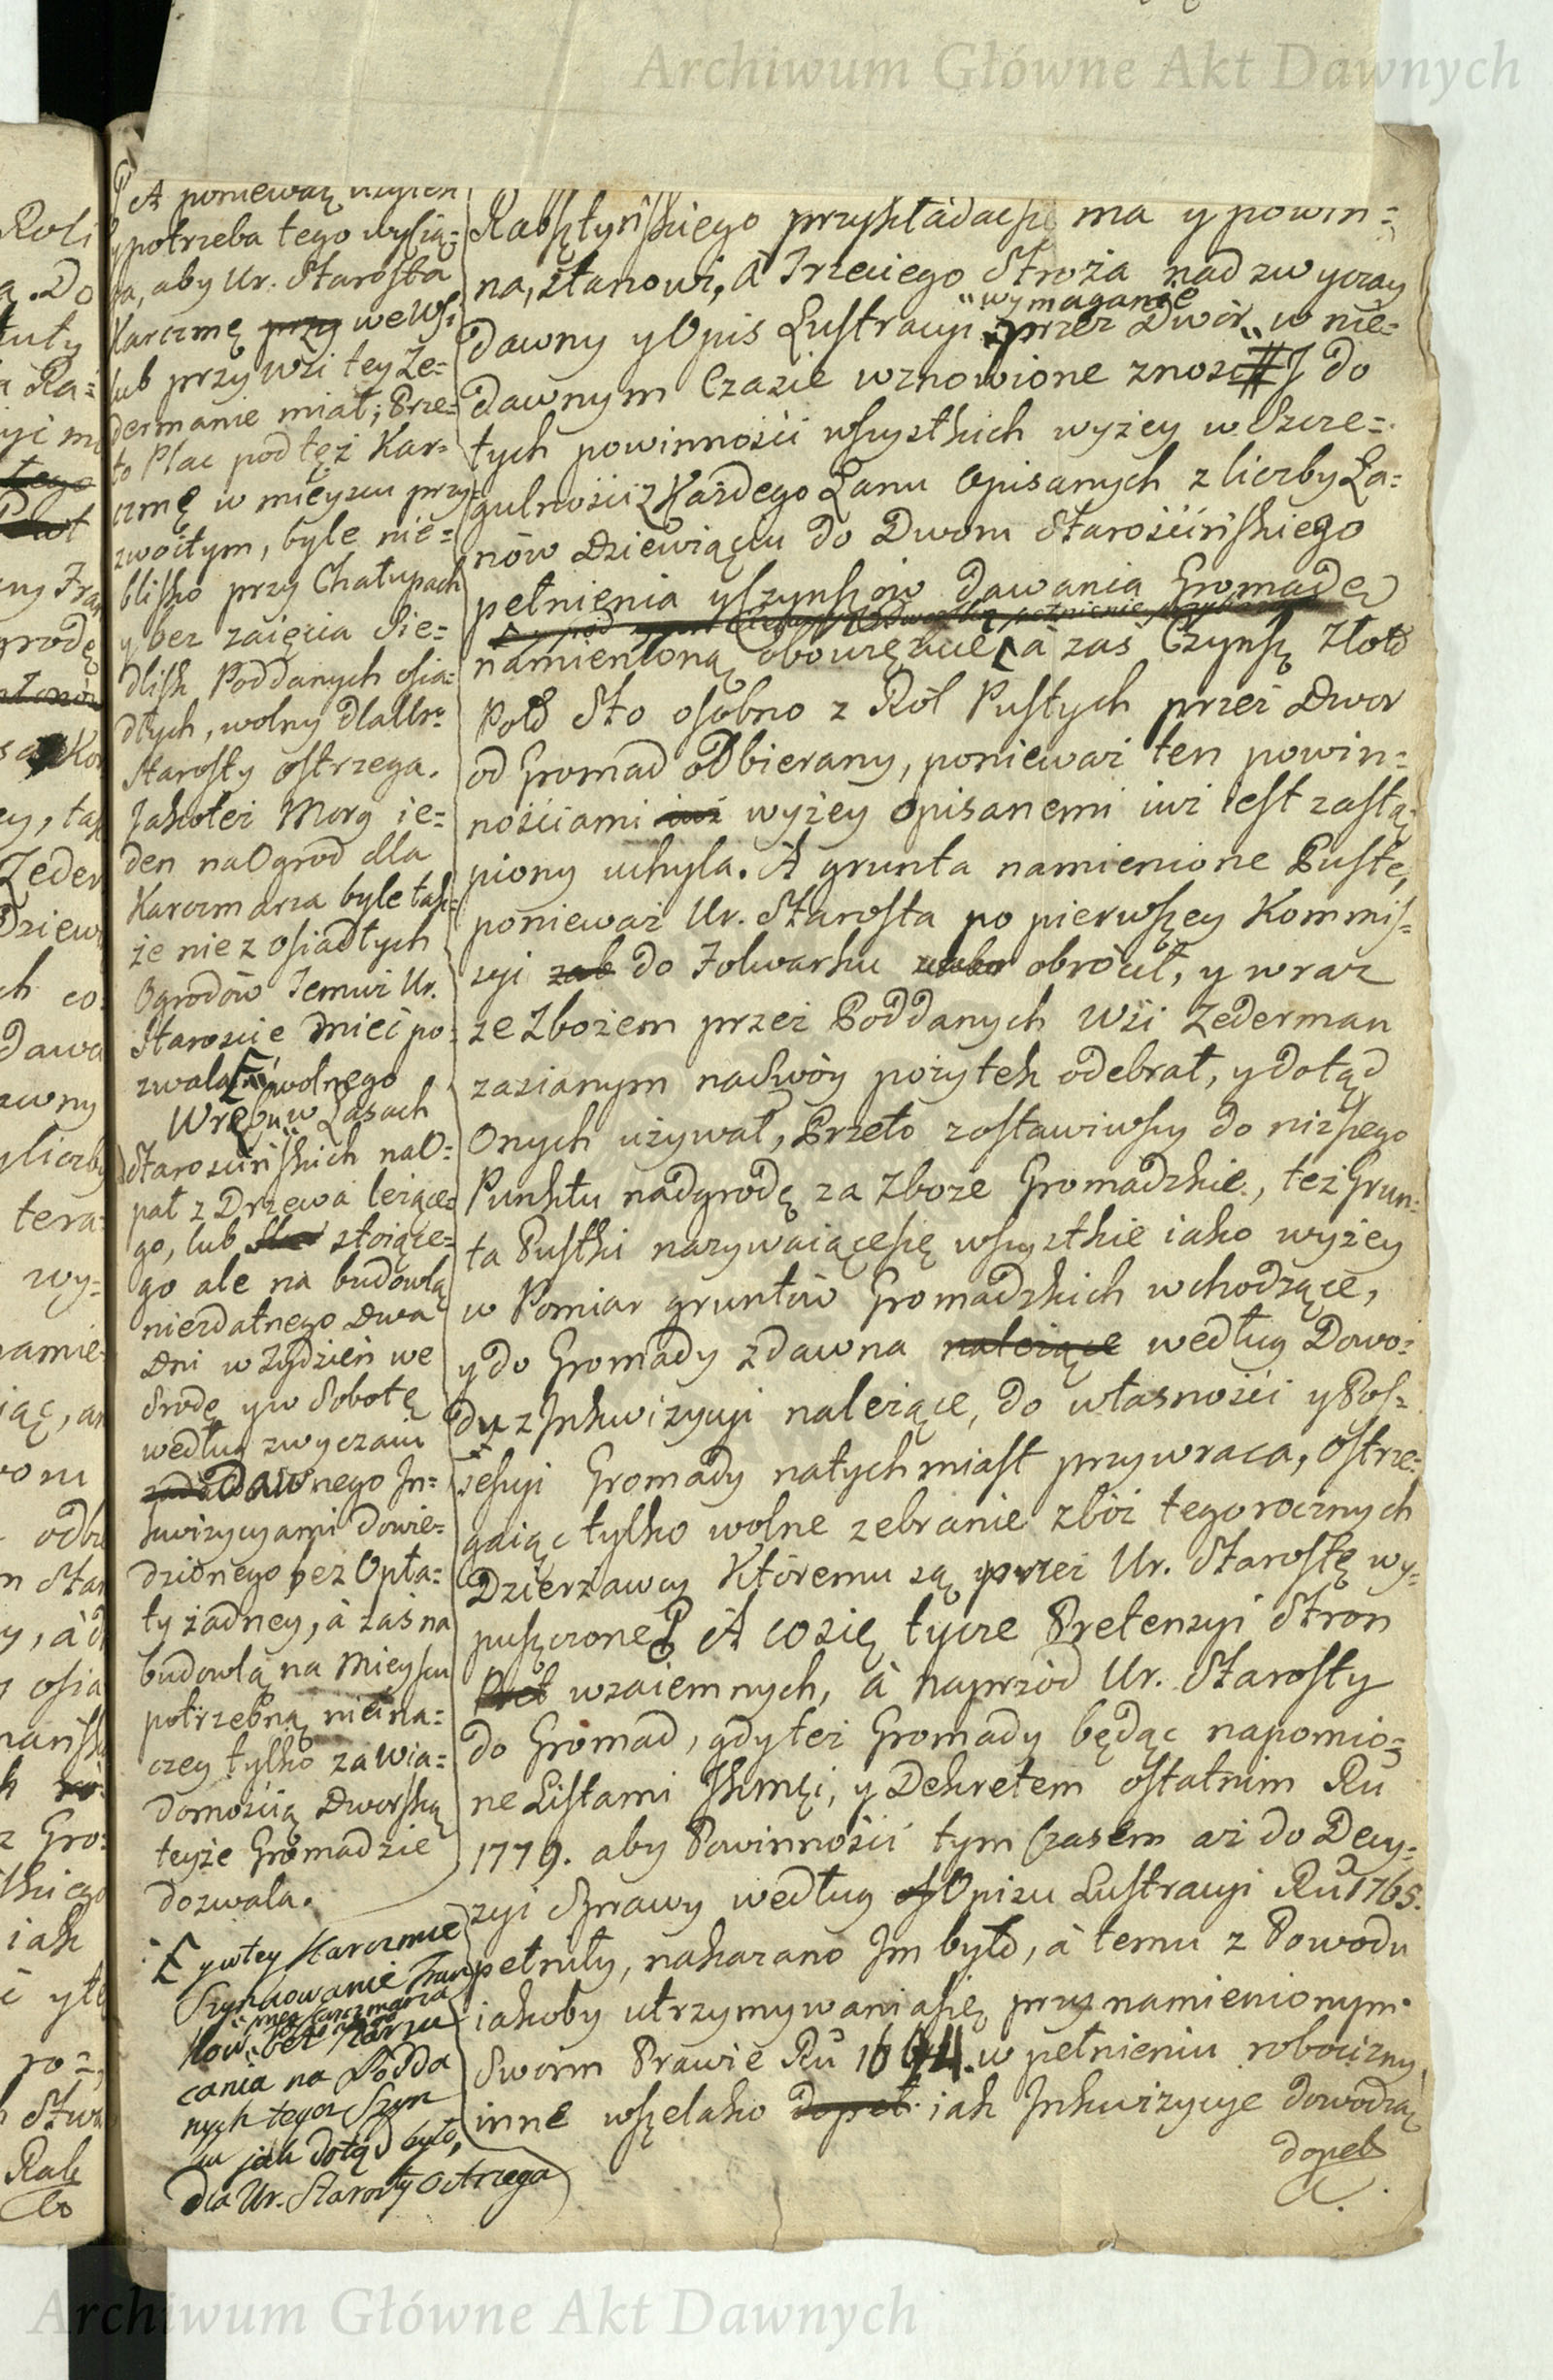 Archiwum Główne Akt Dawnych
A ponieważ
potrzeba tego wysią=
ga, aby Ur. Starosta
Karczmę przy we Wsi
lub przy wsi tey Ze=
dermanie miał; Prze=
to Plac pod tęż Kar=
czmę w mieyscu przy=
zwoitym, byle nie=
blisko przy Chałupach
y bez zaięcia Sie=
dlisk Poddanych osia=
dłych, wolny dla Ur.
Starosty ostrzega.
Jakoteż Morg ie=
den na Ogrod dla
Karczmarza byle tak=
że nie z osiadłych
Ogrodów Temuż Ur.
Staroscie mieć po=
zwala, wolnego
Wrębu w Lasach
Staroscińskich na O=
pał z Drzewa leżące=
go, lub stoiące=
go ale na budowlą
niezdatnego Dwa
Dni w Tydzień we
Srodę y w Sobotę
według zwyczaiu
dawnego In=
kwizycyami dowie=
dzionego bez Opła=
ty żadney, à zaś na
budowlą na Mieyscu
potrzebną nieina=
czey tylko za Wia=
domością Dworską
teyże Gromadzie
dozwala.
y w tey Karczmie
Szynkowanie Trun
przez Karczmarza
ków, bez Narzu
cania na Podda
nych tegoż Szyn
ku jak dotąd było,
dla Ur. Starosty Ostrzega
Rabsztyńskiego przykładać się ma y powin=
na, stanowi, à Trzeciego Stroża nad zwyczay
wymaganie
dawny y Opis Lustracyi przez Dwór w nie=
dawnym Czasie wznowione znosi # J do
tych powinności wszystkich wyżey w Szcze=
gulności z Każdego Łanu Opisanych z liczby Ła=
nów Dziewiąciu do Dworu Starościńskiego
pełnienia y Czynszów dawania Gromadę
namienioną obowięzuie, à zaś Czynsz Złoł
Pol Sto osobno z Ról Pustych przez Dwor
od Gromad odbierany, ponieważ ten powin=
nościami iuż wyżey Opisanemi iuż iest zastą=
piony uchyla. A grunta namienione Puste,
ponieważ Ur. Starosta po pierwszey Kommis=
syi zab do Folwarku obrócił, y wraz
ze Zbożem przez Poddanych Wsi Zederman
zasianym na Swóy pożytek odebrał, y dotąd
Onych używał, Przeto zostawiwszy do niższego
Punktu nadgrodę za Zboże Gromadzkie, też Grun=
ta Pustki nazywaiące się wszystkie iako wyżey
w Pomiar gruntów Gromadzkich wchodzące,
y do Gromady zdawna należące według Dowo=
dy z Inkwizycyi należące, do własności y Pos=
sessyi Gromady natychmiast przywraca, Ostrze=
gaiąc tylko wolne zebranie zbóż tegorocznych
Dzierżawcy Któremu są przez Ur. Starostę wy=
puszczone A co się tycze Pretensyi Stron
Pret wzaiemnych, à naprzód Ur. Starosty
do Gromad, gdy też Gromady będąc napomio=
ne Listami Jkmci, y Dekretem ostatnim Ru
1779. aby Powinności tym Czasem aż do Decy=
zyi Sprawy według Opisu Lustracyi Ru 1765.
pełniły, nakazano Jm było, à temu z Powodu
iakoby utrzymywania się przy namienionym
Swoim Prawie Ru 1644. w pełnieniu robocizny
inne wszelako dopeł iak Inkwizycye dowodzą
dopeł
Archiwum Główne Akt Dawnych